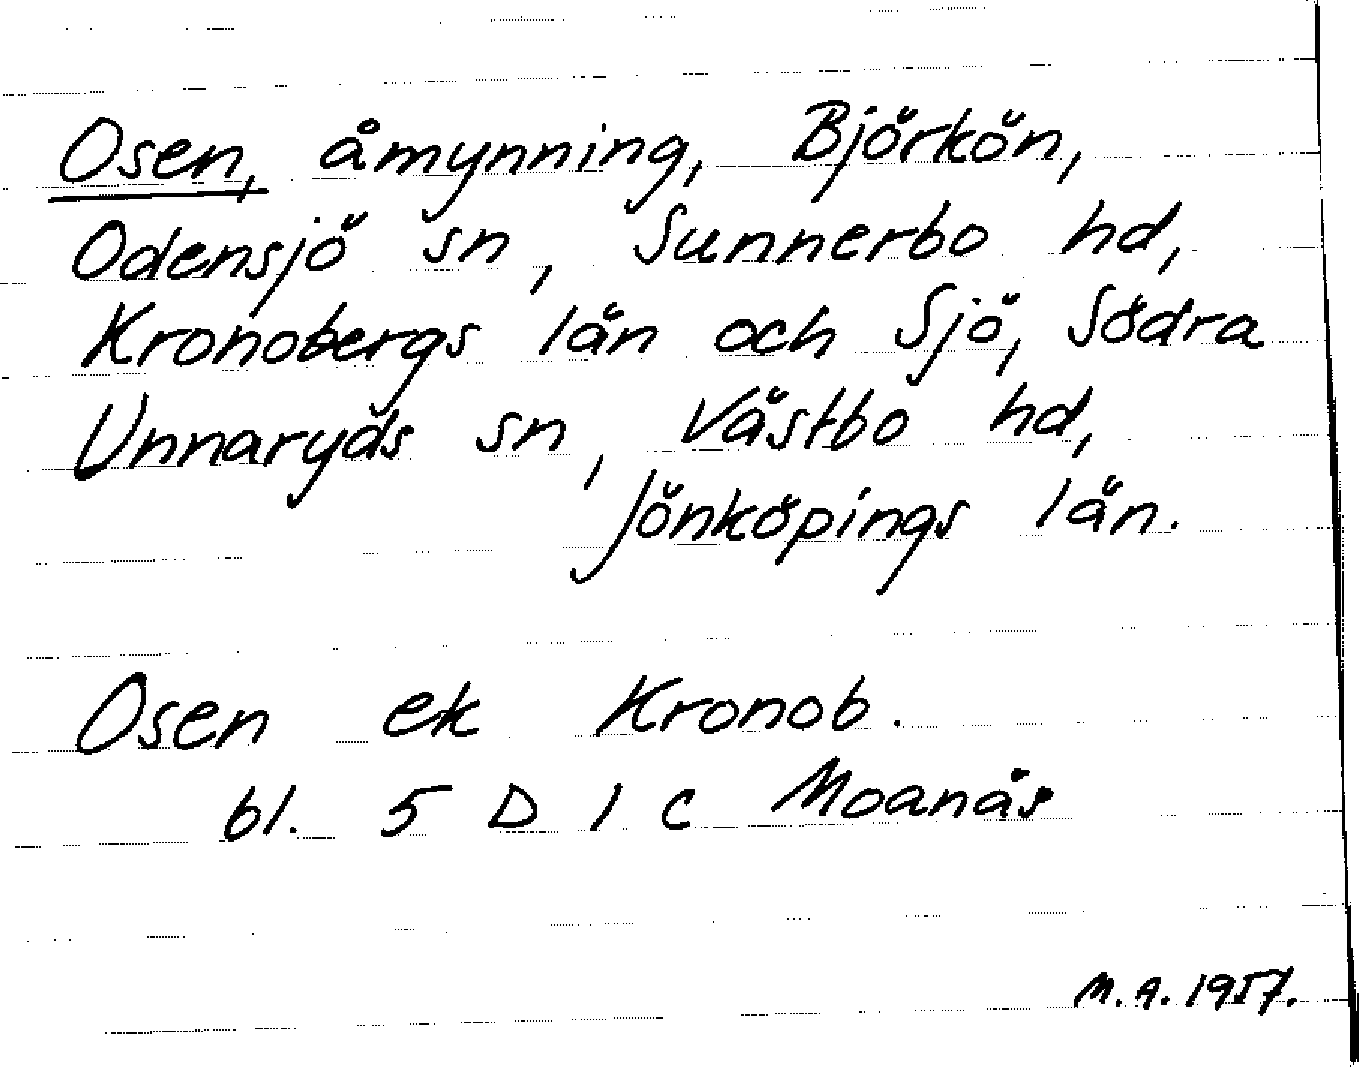 Osen, åmynning, Björkön,
Odensjö sn, Sunnerbo hd,
Kronobergs län och Sjö, Södra
Unnaryds sn, Västbo hd,
Jönköpings län.
Osen ek Kronob.
bl. 5 D 1 c Moanäs
M.A. 1957.